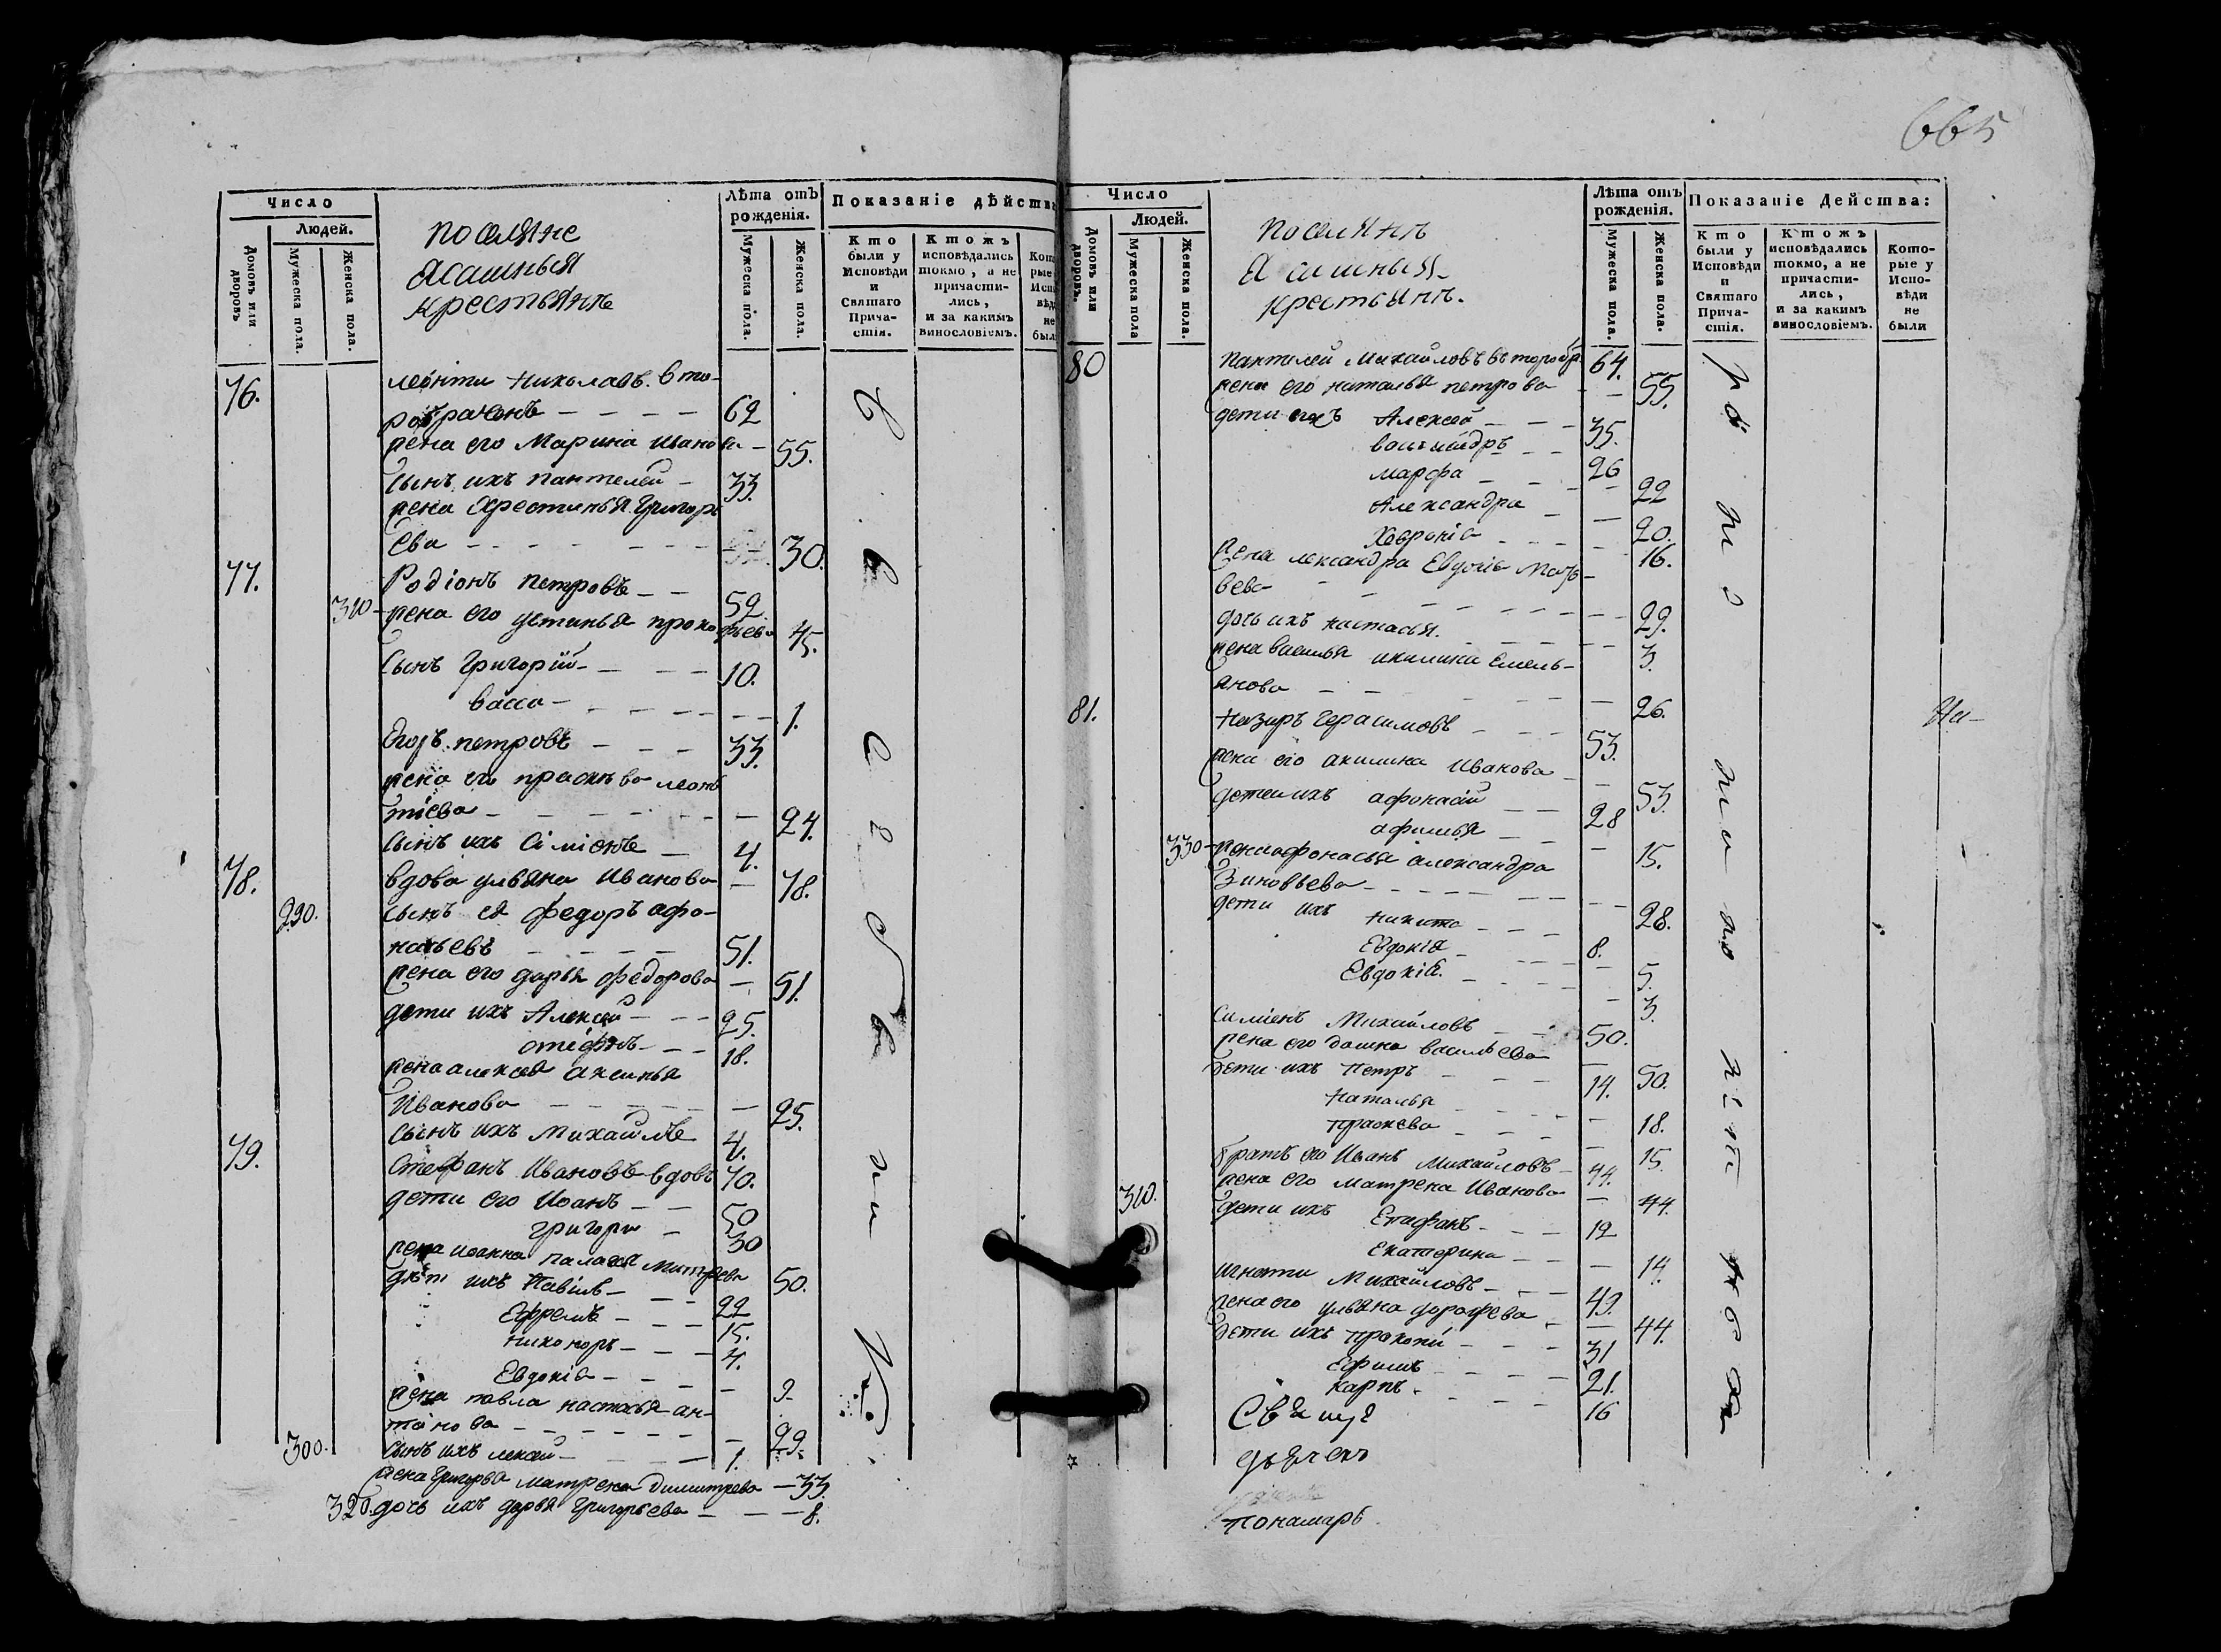 665
Число
Людей.
Домовъ или дворовъ
Мужеска пола.
Женска пола.
поселяне
Ясашныя
крестьяне
Лѣта отъ рожденія.
Мужеска пола.
Женска пола.
Показаніе дѣйства
Кто были у Исповѣди и Святаго Прича-стія.
Ктожъ исповѣдались токмо, а не причасти-лись, и за какимъ винословіемъ.
76.
леонти николаевъ вто-
робраченъ — — — — 62
жена его Марина иванова — 55.
Сынъ ихъ пантелей — 33.
жена Хрестинья Григорь
ева — — — — 30.
77.
Родіонъ петровъ — — 52
310 — жена его устинья прокофьева 45.
Сынъ Григорій — — — 10.
васса — — — — 1.
Егоръ петровъ — — — 33.
жена его прасковья леон
тіева — — — — 24.
Сынъ ихъ Сіміонъ — 4.
78.
вдова ульяна Иванова — 78.
290.
Сынъ ея федоръ афо-
насьевъ — — — — 51.
жена его дарья федорова — 51.
дети ихъ Алексей — — — 25.
стефанъ — — — 18.
жена алексея аксинья
Иванова — — — — 25.
Сынъ ихъ Михайлъ 4.
79.
Стефанъ Ивановъ вдовъ 70.
дети его Иоанъ — — 50
григори — 30
жена иоанна палагя митрева 50.
дети ихъ Павилъ — — — 22
Ефремъ — — — 15.
никоноръ — — — 4.
Евдокіа — — — 9.
жена павла настасья ан-
тонова — — — — 29.
300.
Сынъ ихъ лексей — — 1.
жена Григорья матрена Димитрева — 33.
320. дочь ихъ дарья Григорьева — — — 8.
Число
Людей.
Домовъ или дворовъ.
Мужеска пола
Женска пола.
поселянъ
крестьянъ.
Лѣта отъ рожденія.
Мужеска пола.
Женска пола.
Показаніе Действа:
Кто были у Исповѣди и Святаго Прича-стія.
Ктожъ исповѣдались токмо, а не причасти-лись, и за какимъ винословіемъ.
Кото-рые у Испо-вѣди не были
80
пантилей Михайловъ второбр. 64.
жена его наталья петрова — — 55.
дети ихъ Алексей — — — 35.
26
марфа — — — 22
Александра — — 20.
Хевронія — — — 16.
жена лександра Евдокіа Матв-
вева — — — — 29.
дочь ихъ настасья. — — — 3.
жена василья акилина Емель-
янова — — — — 26.
81.
Назаръ Герасимовъ — — — 53.
жена его акилина Иванова — — 53.
дети ихъ афонасій — — 28
афимья — — 15.
330 — жена афонасья александра
Зиновьева — — — — 28.
дети ихъ никита — — — 8.
Евдокія — — — 5.
Евдокіа. — — — 3.
Симіонъ Михайловъ — — 50.
жена его домна васильева — 50.
дети ихъ Петръ — — — 14.
Наталья — — — 18.
прасковя — — — 15.
братъ его Иванъ Михайловъ — 44.
310.
жена его матрена Иванова — 44.
дети ихъ Епифанъ — — — 12
Екатерина — — — 14.
игнати Михайловъ — — — 49.
жена его ульяна дорофева — — 44.
дети ихъ прокопи — — — 31
Ефимъ — — — 21.
карпъ — — — 16
дьячекъ
пономарь